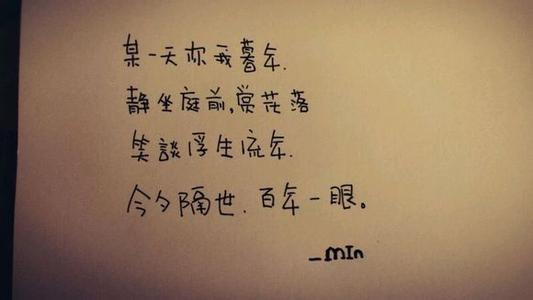 某一天你我暮年.
静坐庭前,赏花落
笑談浮生流年.
今夕隔世.百年一眼。
-min